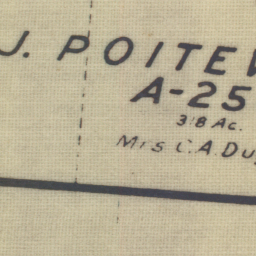 J. POITEV
A-25
318 Ac.
Mrs C.A. Du